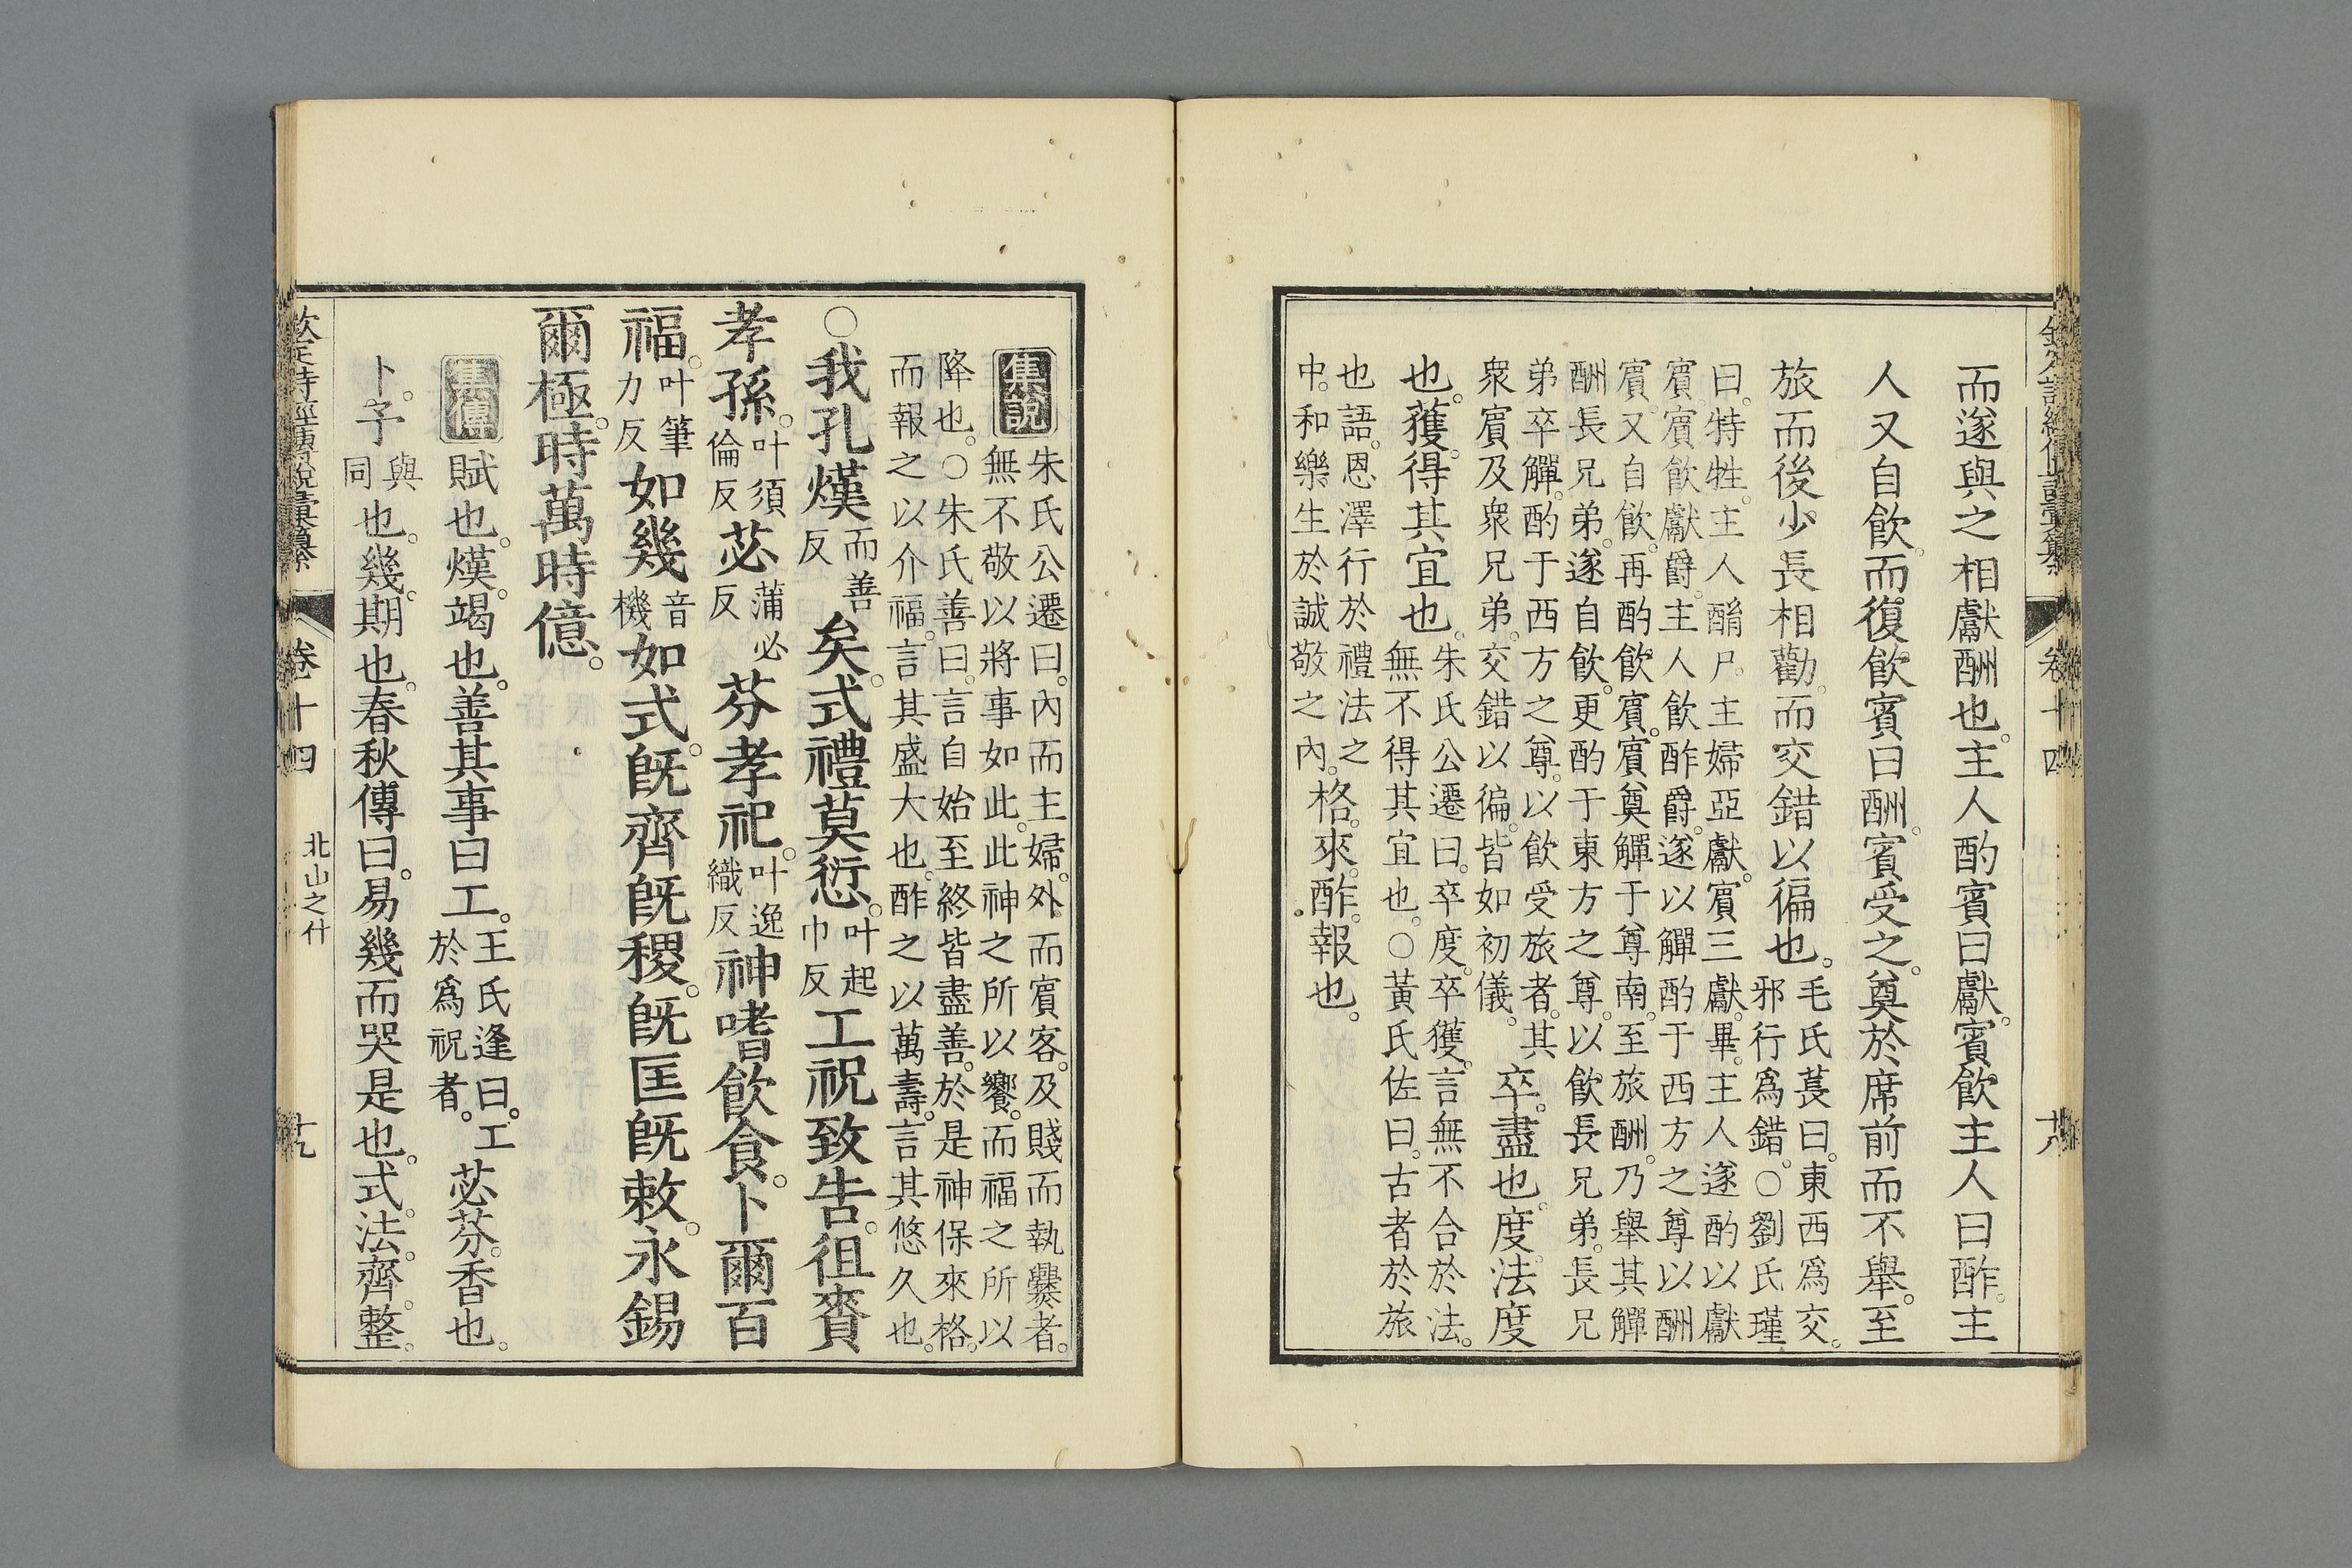 欽定詩經傳說彙纂 卷十四 十八
而遂與之相獻酬也。主人酌賓曰獻。賓飲主人曰酢。主
人又自飲。而復飲賓曰酬。賓受之。奠於席前而不舉。至
旅而後少長相勸。而交錯以徧也。
毛氏萇曰。東西爲交。
邪行爲錯。○劉氏瑾
曰。特牲。主人酳尸。主婦亞獻。賓三獻。畢。主人遂酌以獻
賓。賓飲獻爵。主人飲酢爵。遂以觶酌于西方之尊以酬
賓。又自飲。再酌飲賓。賓奠觶于尊南。至旅酬。乃舉其觶
酬長兄弟。遂自飲。更酌于東方之尊。以飲長兄弟。長兄
弟卒觶。酌于西方之尊。以飲受旅者。其
衆賓及衆兄弟。交錯以徧。皆如初儀。
卒。盡也。度。法度
也。獲。得其宜也。
朱氏公遷曰。卒度。卒獲。言無不合於法。
無不得其宜也。○黃氏佐曰。古者於旅
也語。恩澤行於禮法之
中。和樂生於誠敬之內。
格。來。酢。報也。
集說
朱氏公遷曰。內而主婦。外而賓客。及賤而執爨者。
無不敬以將事如此。此神之所以饗。而福之所以
降也。○朱氏善曰。言自始至終皆盡善。於是神保來格。
而報之以介福。言其盛大也。酢之以萬壽。言其悠久也。
○我孔熯
而善
反
矣。式禮莫愆。
叶起
巾反
工祝致告。徂賚
孝孫。
叶須
倫反
苾
蒲必
反
芬孝祀。
叶逸
織反
神嗜飲食。卜爾百
福。
叶筆
力反
如幾
音
機
如式。旣齊旣稷。旣匡旣敕。永錫
爾極。時萬時億。
集傳
賦也。熯。竭也。善其事曰工。
王氏逢曰。工
於爲祝者。
苾芬。香也。
卜。予
與
同
也。幾。期也。春秋傳曰。易幾而哭是也。式。法。齊。整。
欽定詩經傳說彙纂 卷十四 北山之什 十九